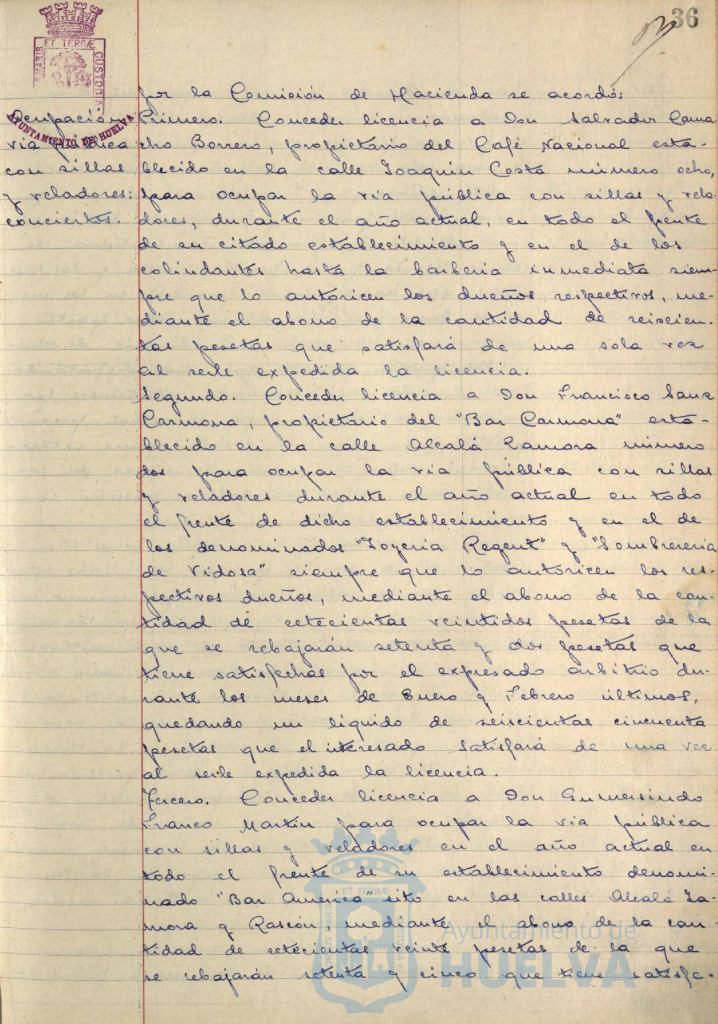 36
PORTUS MARIS ET TERRAE CUSTODIA
AYUNTAMIENTO DE HUELVA
Ocupación
vía pública
con sillas
y veladores:
conciertos.
por la Comisión de Hacienda se acordó:
Primero. Conceder licencia a Don Salvador Cama
cho Borrero, propietario del Café Nacional esta-
blecido en la calle Joaquin Costa número ocho,
para ocupar la via pública con sillas y vela-
dores, durante el año actual, en todo el frente
de su citado establecimiento y en el de los
colindantes hasta la barberia inmediata siem-
pre que lo autoricen los dueños respectivos, me-
diante el abono de la cantidad de seiscien-
tas pesetas que satisfará de una sola vez
al serle expedida la licencia.
Segundo. Conceder licencia a Don Francisco Sanz
Carmona, propietario del "Bar Carmona" esta-
blecido en la calle Alcalá Zamora número
dos para ocupar la via pública con sillas
y veladores durante el año actual en todo
el frente de dicho establecimiento y en el de
los denominados "Joyeria Regent" y "Sombrereria
de Vidosa" siempre que lo autoricen los res-
pectivos dueños, mediante el abono de la can-
tidad de setecientas veintidos pesetas de la
que se rebajarán setenta y dos pesetas que
tiene satisfechas por el expresado arbitrio du-
rante los meses de Enero y Febrero últimos,
quedando un líquido de seiscientas cincuenta
pesetas que el interesado satisfará de una vez
al serle expedida la licencia.
Tercero. Conceder licencia a Don Gumersindo
Franco Martin para ocupar la via pública
con sillas y veladores en el año actual en
todo el frente de su establecimiento denomi-
nado "Bar America" sito en las calles Alcalá Za-
mora y Rascón, mediante el abono de la can-
tidad de setecientas veinte pesetas de la que
se rebajarán setenta y cinco que tiene satisfe-
Ayuntamiento de
HUELVA